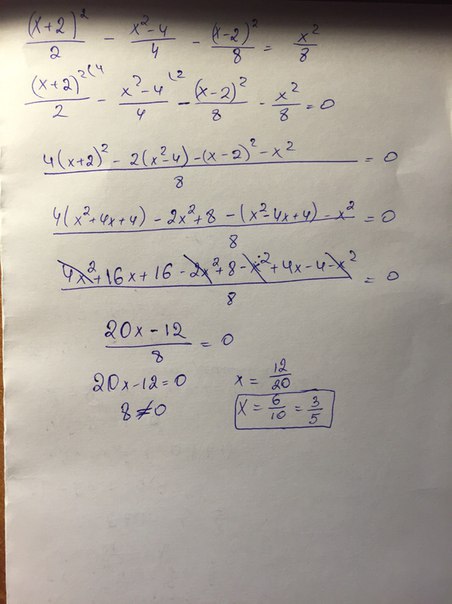 (x+2)²/2 - x²-4/4 - (x-2)²/8 = x²/8
(x+2)² (4/2 - x²-4 (2/4 - (x-2)²/8 - x²/8 = 0
4(x+2)² - 2(x²-4) - (x-2)² - x²/8 = 0
4(x²+4x+4) - 2x²+8 - (x²-4x+4) - x²/8 = 0
4x²+16x+16-2x²+8-x²+4x-4-x²/8 = 0
20x-12/8 = 0
20x-12=0 x = 12/20
8≠0 x = 6/10 = 3/5